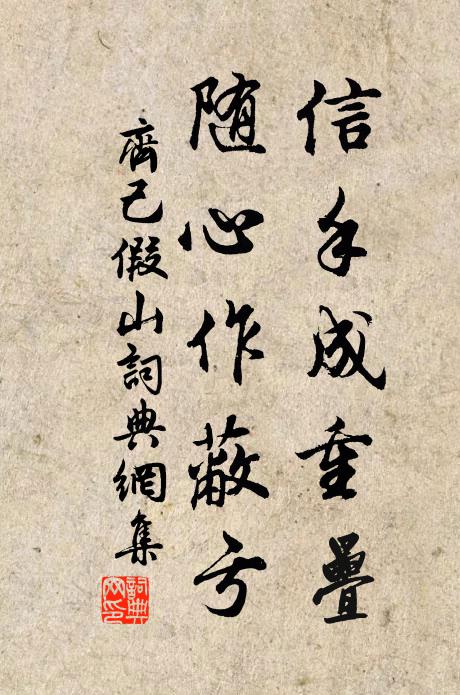 信手成重疊
随心作蔽亏
齊己假山詞典網集
詞典網印